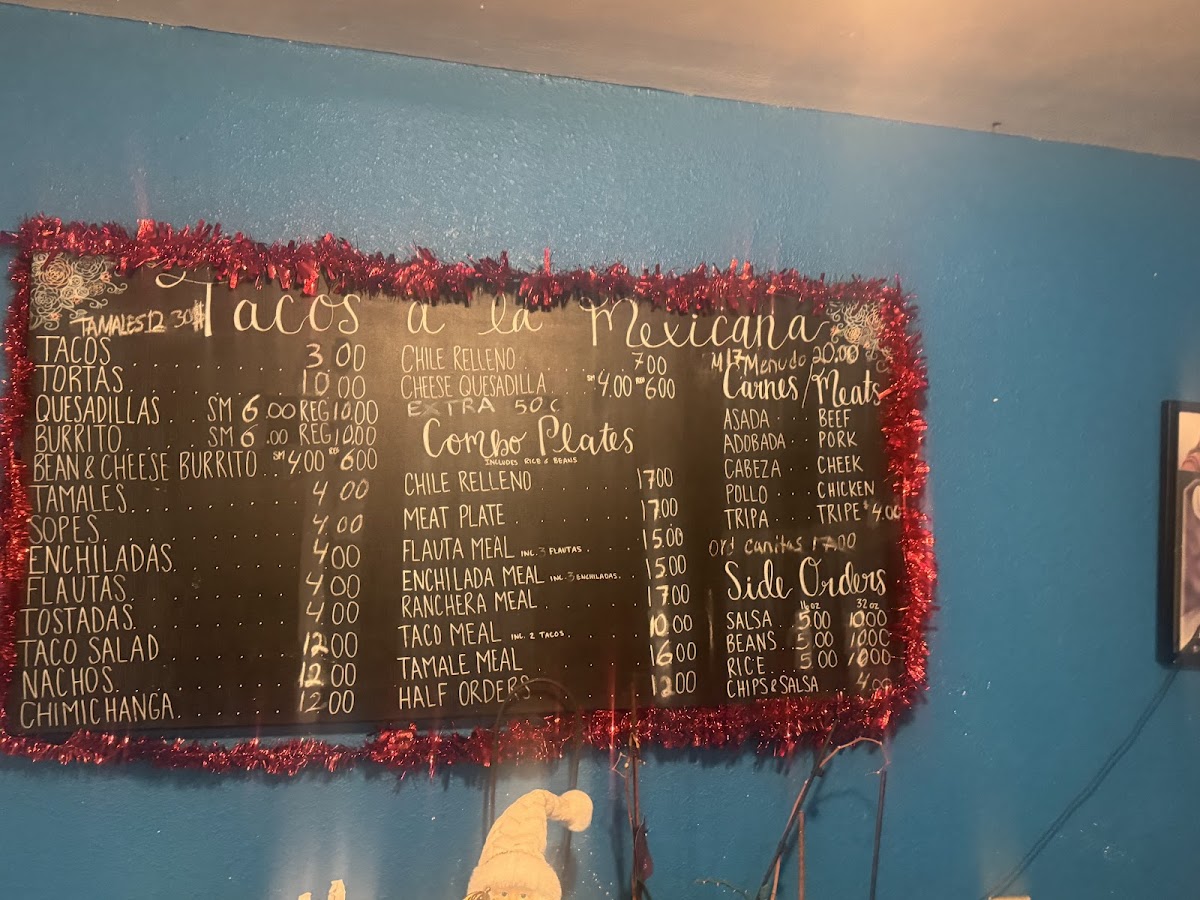 Tacos a la Mexicana
TAMALES 12 30$
TACOS . . . . . . . 3.00
TORTAS . . . . . . . 10.00
QUESADILLAS . . SM 6.00 REG 10.00
BURRITO . . . . SM 6.00 REG 10.00
BEAN & CHEESE BURRITO . . SM 4.00 REG 6.00
TAMALES . . . . . . . 4.00
SOPES . . . . . . . 4.00
ENCHILADAS . . . . . . . 4.00
FLAUTAS . . . . . . . 4.00
TOSTADAS . . . . . . . 4.00
TACO SALAD . . . . . . . 12.00
NACHOS . . . . . . . 12.00
CHIMICHANGA . . . . . . . 12.00
CHILE RELLENO . . . . . . . 7.00
CHEESE QUESADILLA . . SM 4.00 REG 6.00
EXTRA 50¢
Combo Plates
INCLUDES RICE & BEANS
CHILE RELLENO . . . . . . . 17.00
MEAT PLATE . . . . . . . 17.00
FLAUTA MEAL INC. 3 FLAUTAS . . . . 15.00
ENCHILADA MEAL INC. 3 ENCHILADAS . . 15.00
RANCHERA MEAL . . . . . . . 17.00
TACO MEAL INC. 2 TACOS . . . . . 10.00
TAMALE MEAL . . . . . . . 16.00
HALF ORDERS . . . . . . . 12.00
M 17 Menudo 20.00
Carnes/Meats
ASADA . . . BEEF
ADOBADA . . PORK
CABEZA . . CHEEK
POLLO . . . . CHICKEN
TRIPA . . . TRIPE $4.00
17.00
Side Orders
16 oz 32 oz
SALSA . . 5.00 10.00
BEANS . . 5.00 10.00
RICE . . . 5.00 10.00
CHIPS & SALSA . . . 4.00